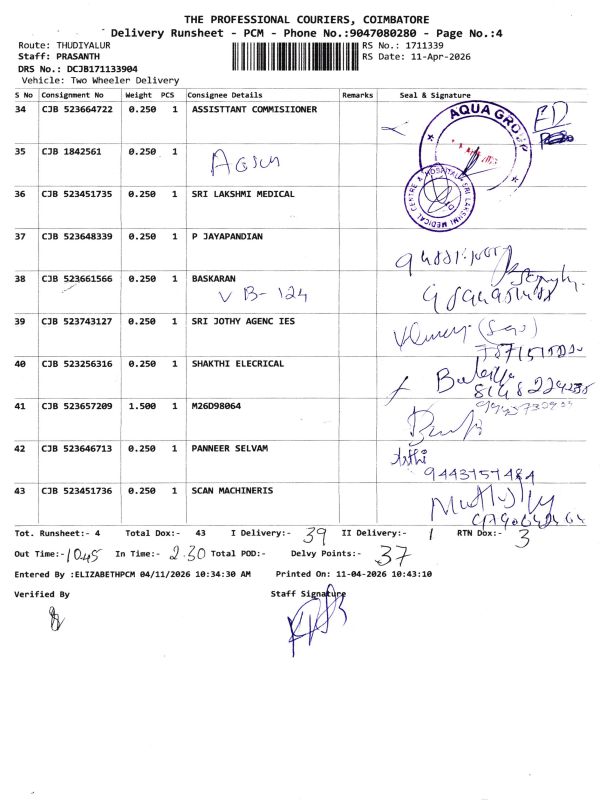 THE PROFESSIONAL COURIERS, COIMBATORE
Delivery Runsheet - PCM - Phone No.:9047080280 - Page No.:4
Route: THUDIYALUR
RS No.: 1711339
Staff: PRASANTH
RS Date: 11-Apr-2026
DRS No.: DCJB171133904
Vehicle: Two Wheeler Delivery
S No Consignment No Weight PCS Consignee Details Remarks Seal & Signature
34 CJB 523664722 0.250 1 ASSISTTANT COMMISIIONER
AQUA GROUP
ED
35 CJB 1842561 0.250 1
36 CJB 523451735 0.250 1 SRI LAKSHMI MEDICAL
SRI LAKSHMI MEDICAL CENTRE & HOSPITAL
37 CJB 523648339 0.250 1 P JAYAPANDIAN
38 CJB 523661566 0.250 1 BASKARAN
B-124
39 CJB 523743127 0.250 1 SRI JOTHY AGENC IES
40 CJB 523256316 0.250 1 SHAKTHI ELECRICAL
41 CJB 523657209 1.500 1 M26D98064
42 CJB 523646713 0.250 1 PANNEER SELVAM
Arthi
9443157484
43 CJB 523451736 0.250 1 SCAN MACHINERIS
Tot. Runsheet:- 4 Total Dox:- 43 I Delivery:- 39 II Delivery:- 1 RTN Dox:- 3
Out Time:- 10.45 In Time:- 2.30 Total POD:- Delvy Points:- 37
Entered By :ELIZABETHPCM 04/11/2026 10:34:30 AM Printed On: 11-04-2026 10:43:10
Verified By Staff Signature